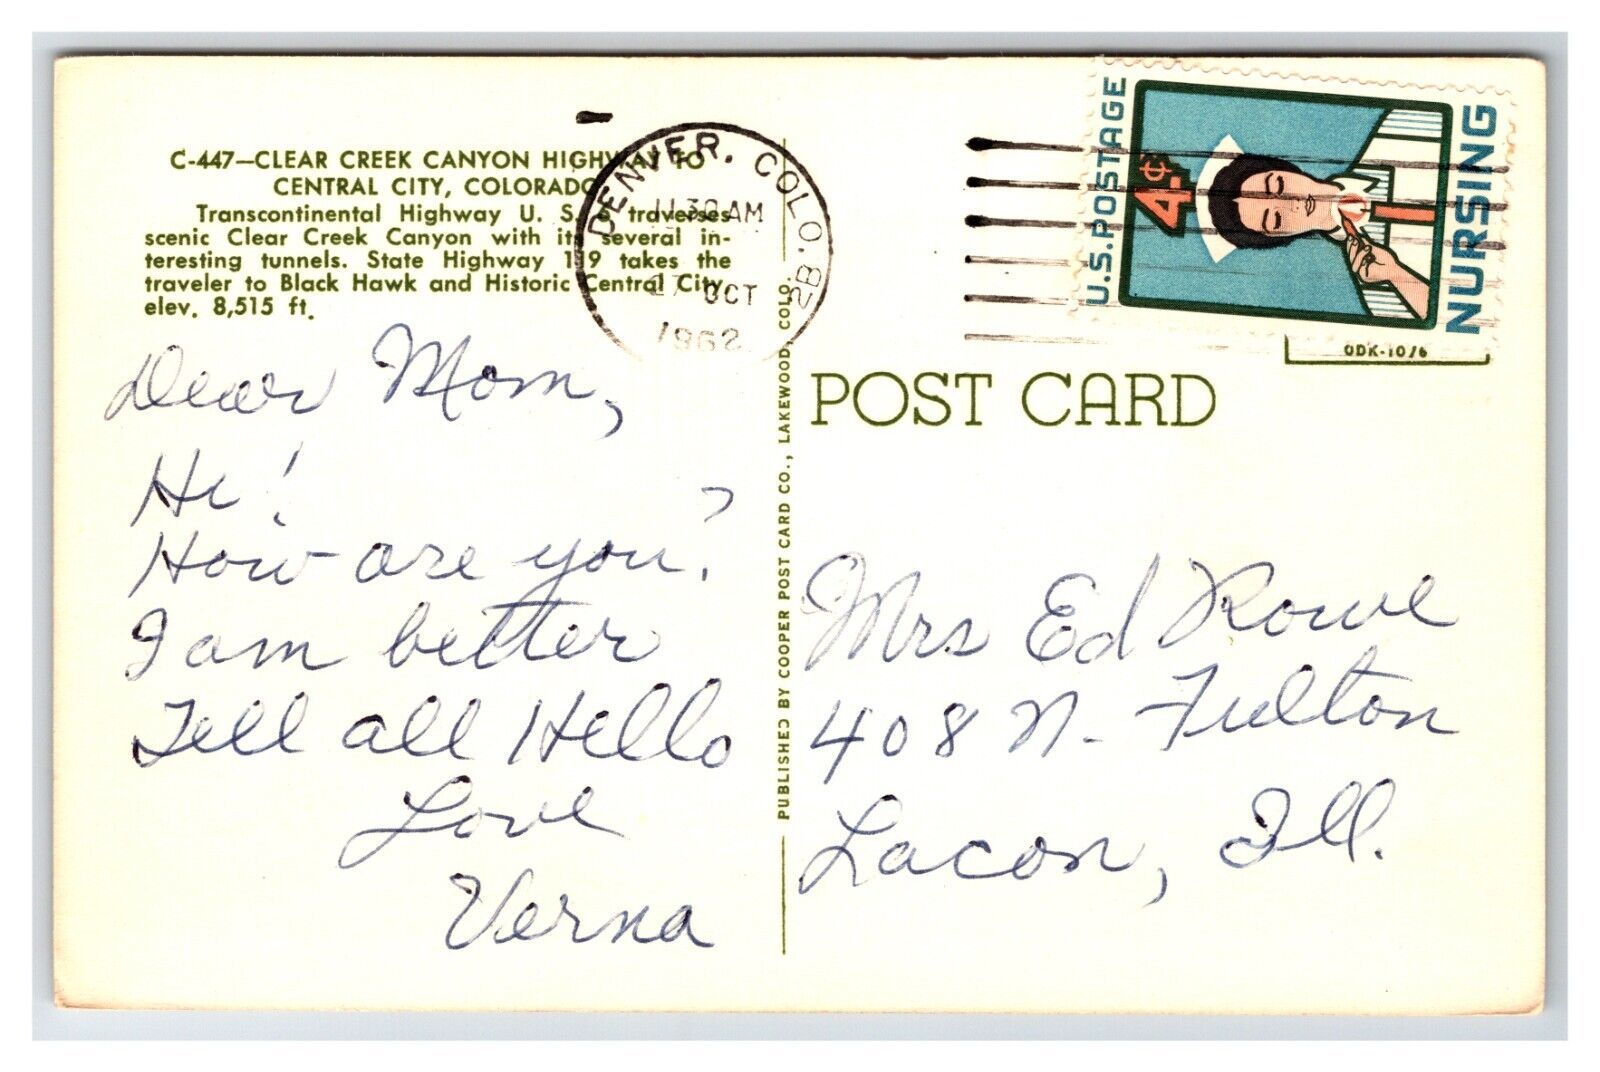 C-447—CLEAR CREEK CANYON HIGHWAY TO
CENTRAL CITY, COLORADO
Transcontinental Highway U. S. 6 traverses
scenic Clear Creek Canyon with its several in-
teresting tunnels. State Highway 119 takes the
traveler to Black Hawk and Historic Central City,
elev. 8,515 ft.
DENVER, COLO. 2B
11 30 AM
27 OCT
1962
U.S. POSTAGE
4¢
NURSING
ODK-1076
POST CARD
PUBLISHED BY COOPER POST CARD CO., LAKEWOOD, COLO.
Dear Mom,
Hi!
How are you?
I am better
Tell all Hello
Love
Verna
Mrs Ed Rowe
408 N. Fulton
Lacon, Ill.